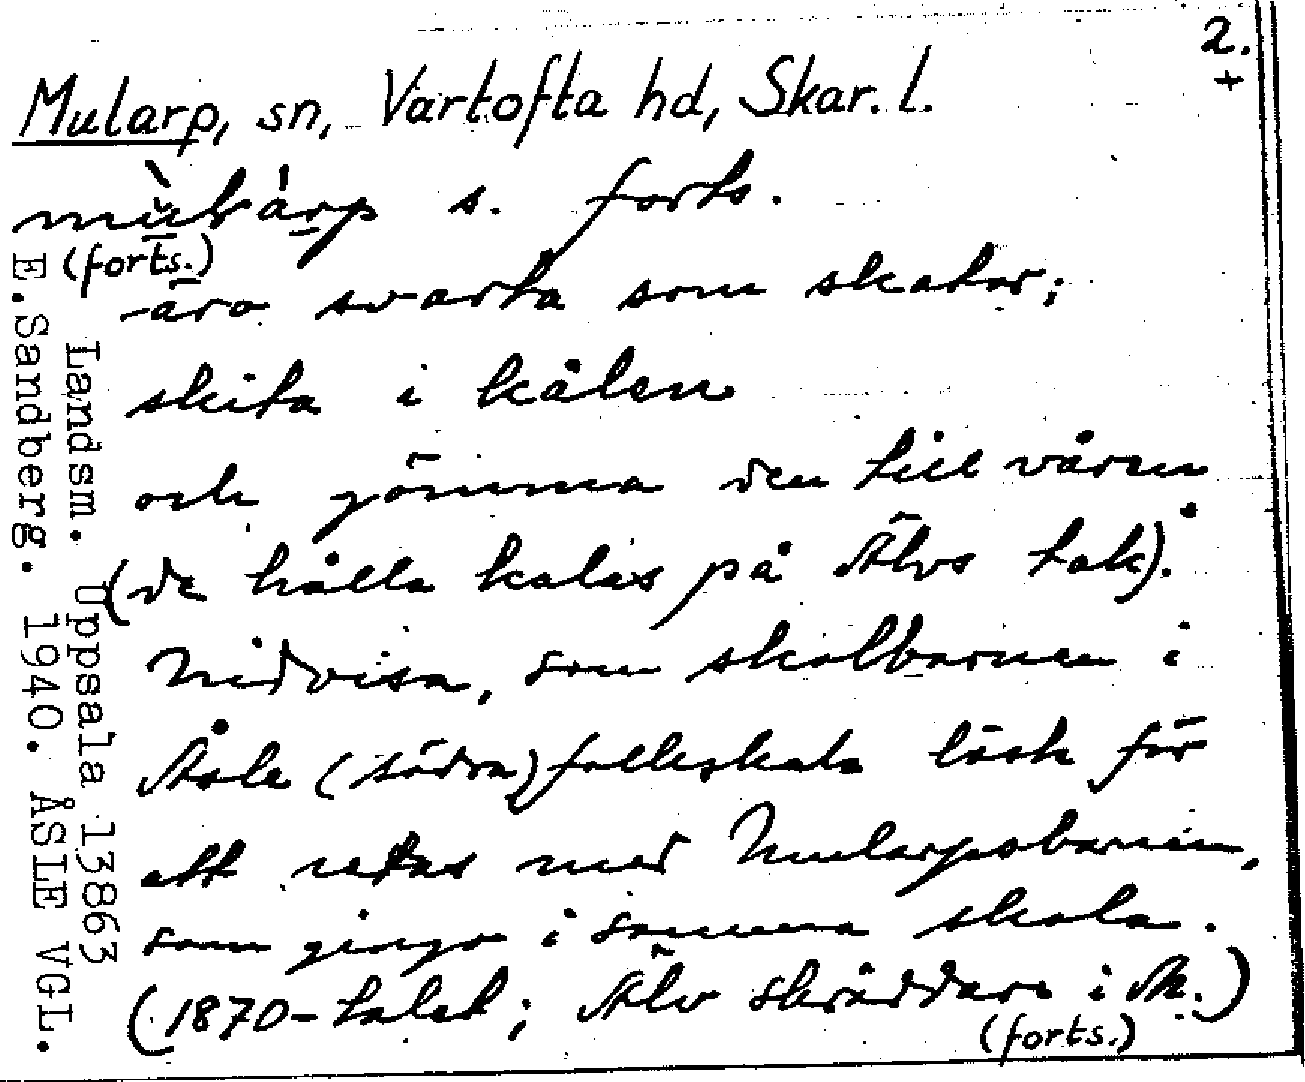 2.
+
Mularp, sn, Vartofta hd, Skar. l.
s. forts.
(forts.)
äro svarta som skator;
skita i kålen
och gömma den till våren
(de hålla kalas på Älvs tak).
Nidvisa, som skolbarnen i
Åsle (södra) folkskola läste för
att retas med Mularpsbarnen,
som gingo i samma skola.
(1870-talet; Älv skräddare i M.)
(forts.)
Landsm. Uppsala 13863
E.Sandberg. 1940. ÅSLE VGL.